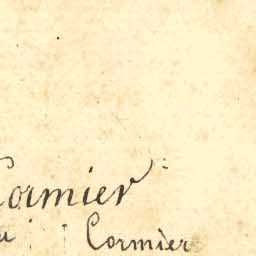 Cormier
Cormier